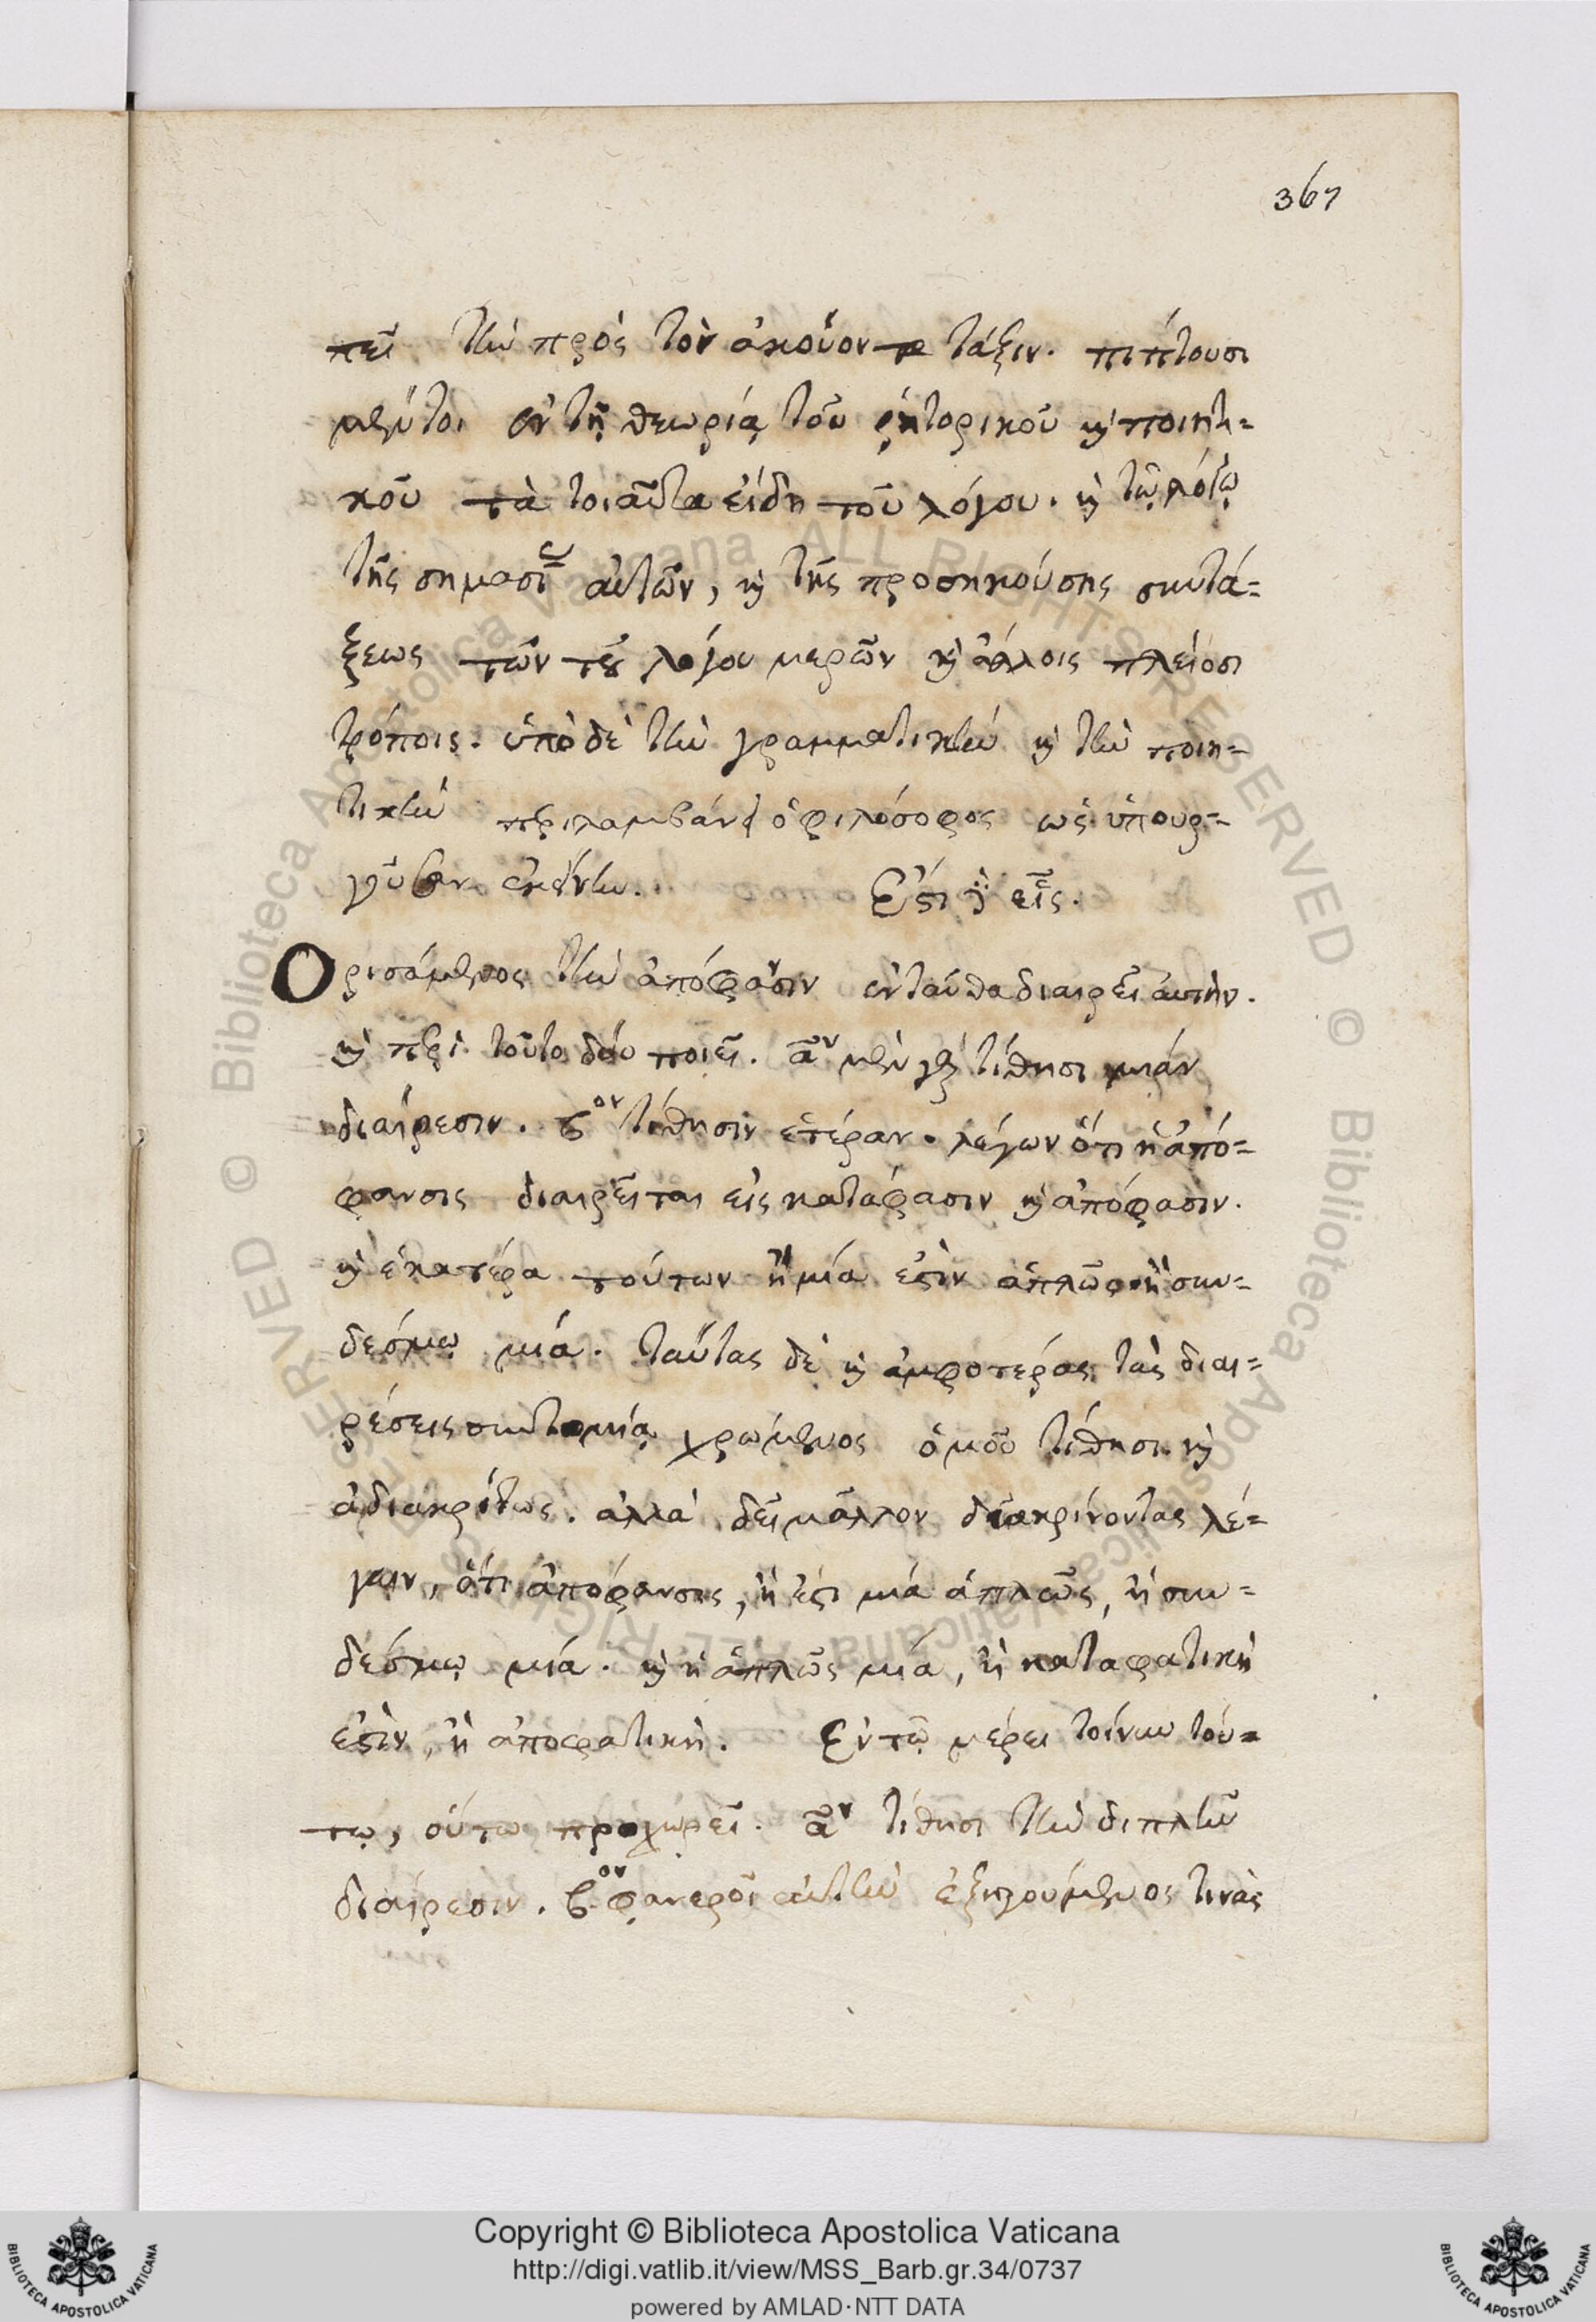 367
πεῖ τὴν πρὸς τὸν ἀκούοντα τάξιν. πίπτουσι
μέντοι ἐν τῇ θεωρίᾳ τοῦ ῥητορικοῦ καὶ ποιητι-
κοῦ τὰ τοιαῦτα εἴδη τοῦ λόγου. καὶ τῷ λόγῳ
τῆς σημασί αὐτῶν, καὶ τῆς προσηκούσης συντά-
ξεως τῶν τοῦ λόγου μερῶν καὶ ἄλλοις πλείοσι
τρόποις. ὑπὸ δὲ τὴν γραμματικὴν καὶ τὴν ποιη-
τικὴν περιλαμβάνει ὁ φιλόσοφος ὡς ὑπουρ-
γοῦσαν ἐκείνην. Ἔστι δὲ εἷς.
Ὁρισάμενος τὴν ἀπόφανσιν ἐνταύθα διαιρεῖ αυτὴν.
καὶ περὶ τοῦτο δύο ποιεῖ. αον μὲν γὰρ τίθησι μιάν
διαίρεσιν. βον τίθησιν ἑτέραν. λέγων ὅτι ἡ ἀπό-
φανσις διαιρεῖται εἰς κατάφασιν καὶ ἀπόφασιν.
καὶ ἑκατέρα τούτων ἢ μία ἐστὶν ἁπλῶς ἢ συν-
δεσμῳ μία. ταύτας δὲ καὶ ἀμφοτέρας τὰς διαι-
ρέσεις συντομίᾳ χρώμενος ὁμοῦ τίθησι καὶ
ἀδιακρίτως. ἀλλὰ δεῖ μᾶλλον διακρίνοντας λέ-
γειν, ὅτι ἀπόφανσις, ἢ ἔστι μία ἁπλῶς, ἢ συν-
δέσμῳ μία. καὶ ἡ ἁπλῶς μία, ἢ καταφατική
ἐστὶν, ἢ ἀποφατικὴ. Ἐν τῷ μέρει τοίνυν τού-
τῳ, οὕτω προχωρεῖ. αον τίθησι τὴν διπλῆν
διαίρεσιν. βον φανεροῖ αὐτὴν ἐξηγούμενος τινὰς
Copyright © Biblioteca Apostolica Vaticana
http://digi.vatlib.it/view/MSS_Barb.gr.34/0737
powered by AMLAD·NTT DATA